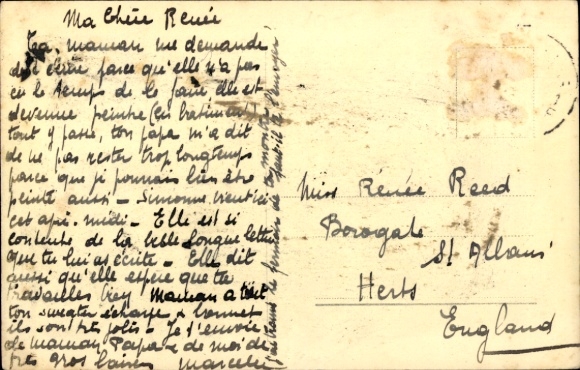 Ma Chère Renée
Ta maman me demande
d' écrire parce qu'elle n'a pas
eu le temps de le faire elle est
devenue peintre (en batiment)
tout y passe, ton papa m'a dit
de ne pas rester trop longtemps
parce que je pourrais bien être
peinte aussi - Simonne vient ici
cet apr. midi - Elle est si
contente de la belle longue lettre
que tu lui as écrite - Elle dit
aussi qu'elle espère que tu
travailles bien Maman a
ton sweater écharpe & bonnet
ils sont très jolis - Je t'envoie
de maman Papa & de moi de
très gros baisers Marcelle
de ta montre
Miss Renée Reed
Borogate
St Albans
Herts
England